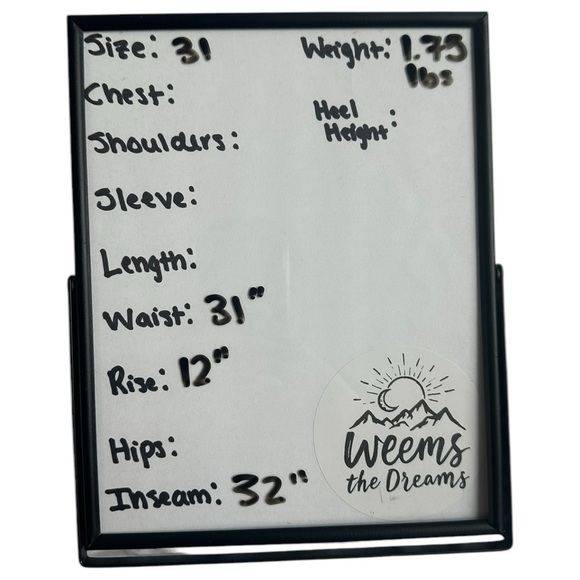 Size: 31
Weight: 1.75
lbs
Chest:
Heel
Height:
Shoulders:
Sleeve:
Length:
Waist: 31"
Rise: 12"
Hips:
Inseam: 32"
Weems
the Dreams